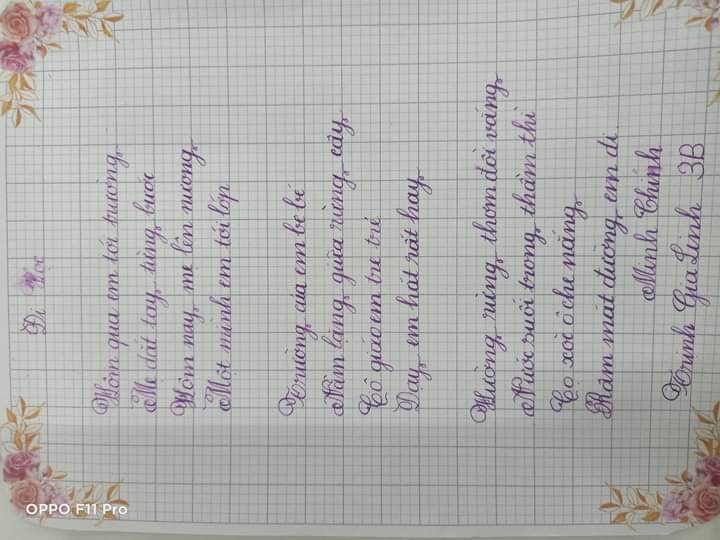 Đi học
Hôm qua em tới trường
Mẹ dắt tay từng bước
Hôm nay mẹ lên nương
Một mình em tới lớp
Trường của em be bé
Nằm lặng giữa rừng cây
Cô giáo em tre trẻ
Dạy em hát rất hay
Hương rừng thơm đồi vắng
Nước suối trong thầm thì
Cọ xòe ô che nắng
Râm mát đường em đi.
Minh Chính
Trịnh Gia Linh 3B
OPPO F11 Pro